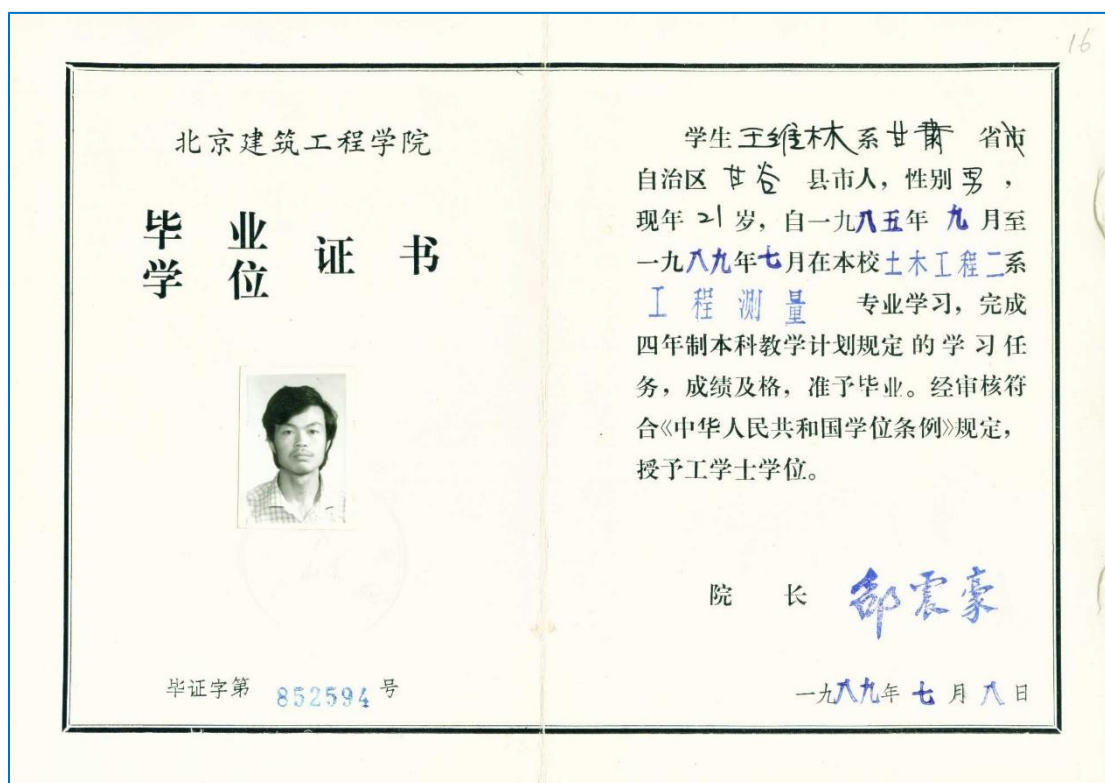 16
北京建筑工程学院
毕业
学位
证书
毕证字第 852594 号
学生王维林系甘肃 省市
自治区 甘谷 县市人，性别男，
现年21岁，自一九八五年九月至
一九八九年七月在本校土木工程二系
工程测量 专业学习，完成
四年制本科教学计划规定的学习任
务，成绩及格，准予毕业。经审核符
合《中华人民共和国学位条例》规定，
授予工学士学位。
院长 邹震豪
一九八九年七月八日